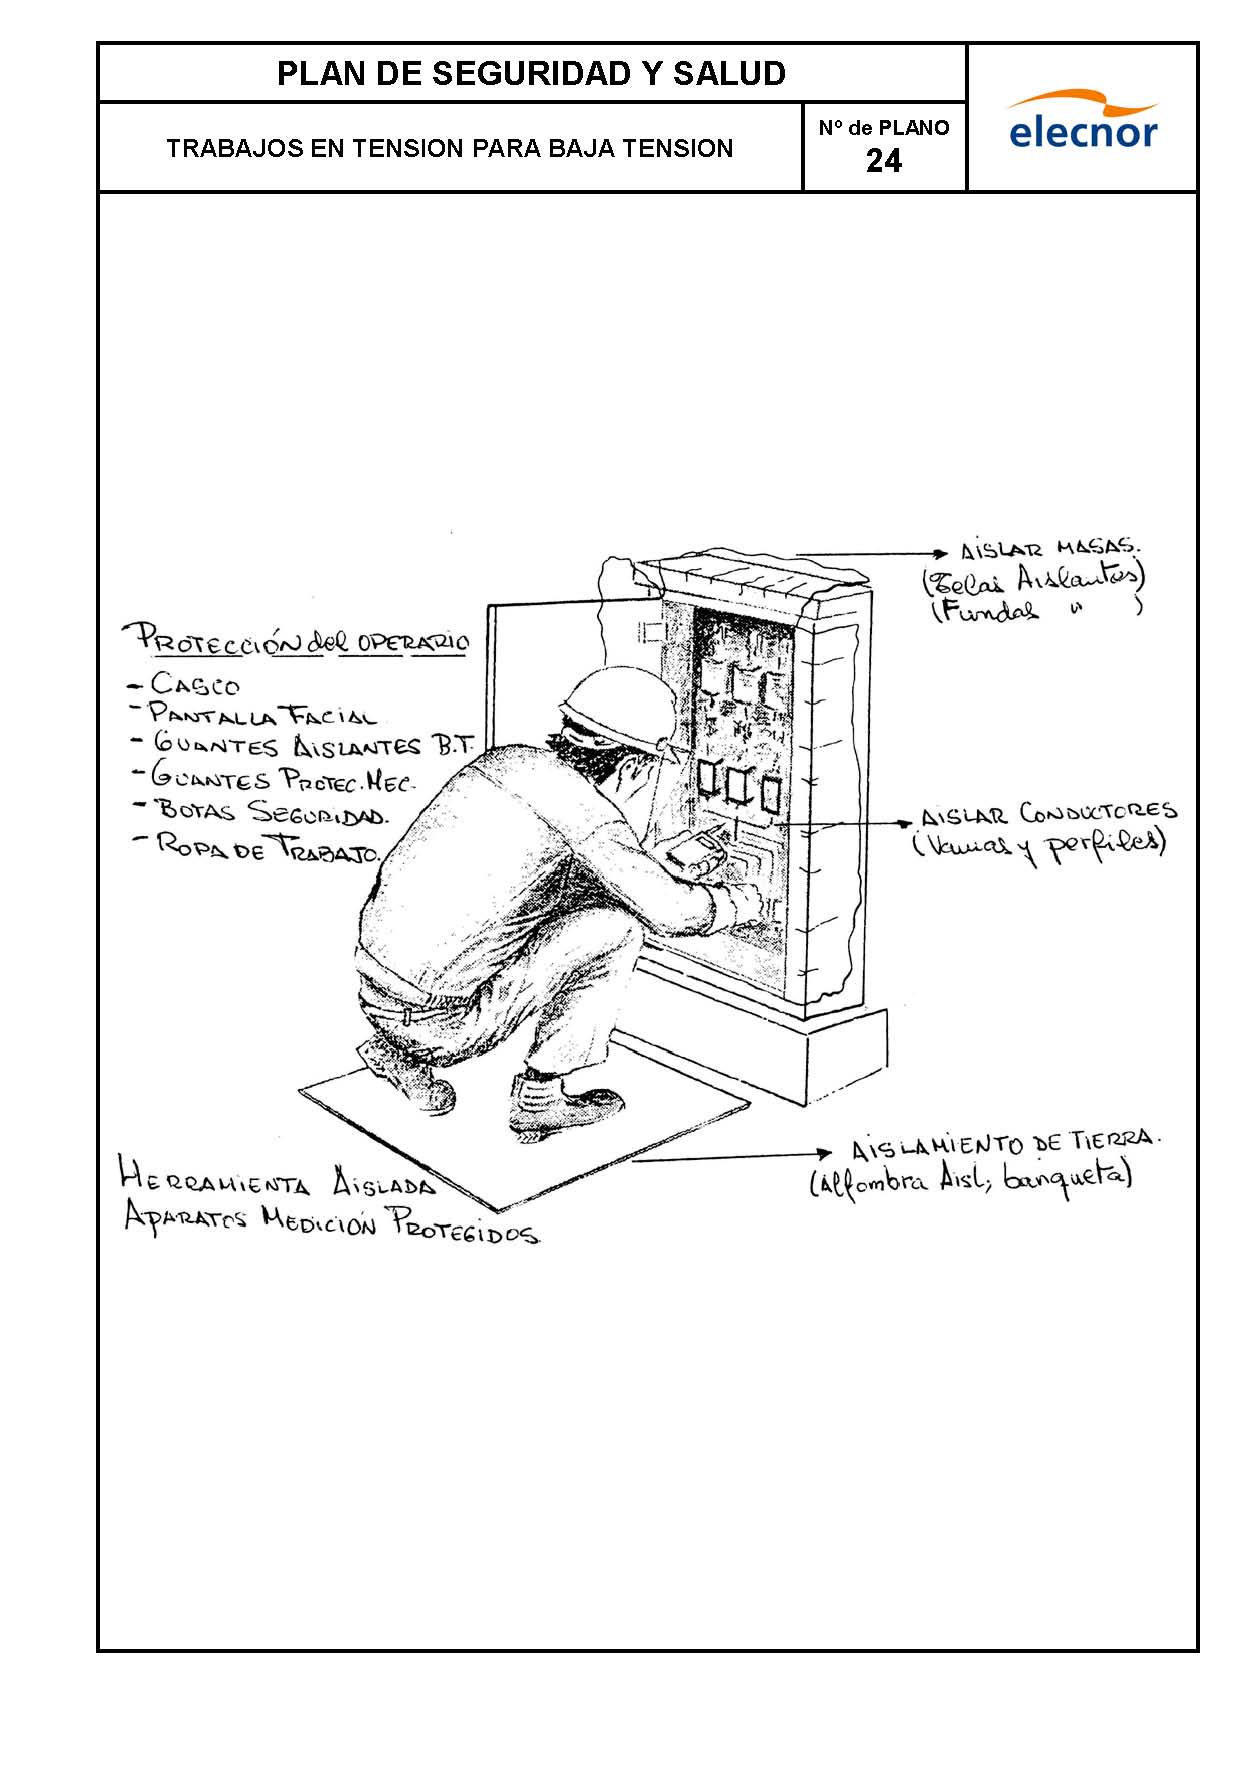 PLAN DE SEGURIDAD Y SALUD
TRABAJOS EN TENSION PARA BAJA TENSION
Nº de PLANO
24
elecnor
AISLAR MASAS.
(Telas Aislantes)
(Fundas " )
PROTECCIÓN del OPERARIO
- CASCO
- PANTALLA FACIAL
- GUANTES AISLANTES B.T.
- GUANTES PROTEC. MEC.
- BOTAS SEGURIDAD.
- ROPA DE TRABAJO.
AISLAR CONDUCTORES
(Vainas y perfiles)
AISLAMIENTO DE TIERRA.
(Alfombra Aisl; banqueta)
HERRAMIENTA AISLADA
APARATOS MEDICIÓN PROTEGIDOS.